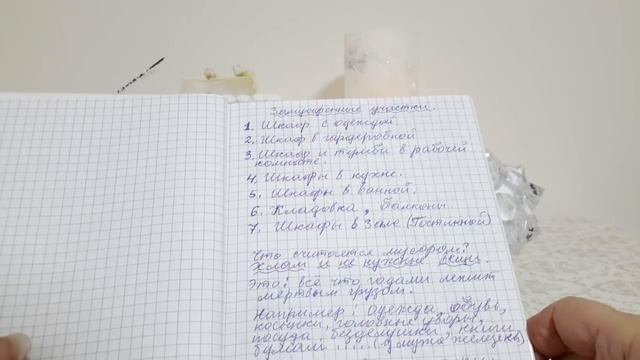 Замусоренные участки.
1. Шкаф с одеждой
2. Шкаф в гардеробной
3. Шкафы и тумбы в рабочей
комнате.
4. Шкафы в кухне.
5. Шкафы в ванной.
6. Кладовка, балконы.
7. Шкафы в Зале (Гостинной)
Что считается мусором?
Хлам и не нужные вещи.
Это: всё что годами лежит
мёртвым грузом.
Например: одежда, обувь,
косынки, головные уборы,
посуда, безделушки, книги,
бумаги .... (у мужа железки)